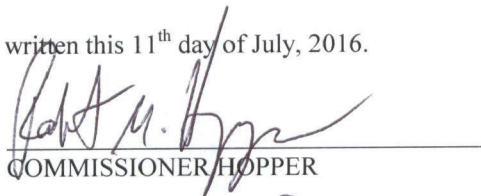 written this 11th day of July, 2016.
Robert M. Hopper
COMMISSIONER HOPPER